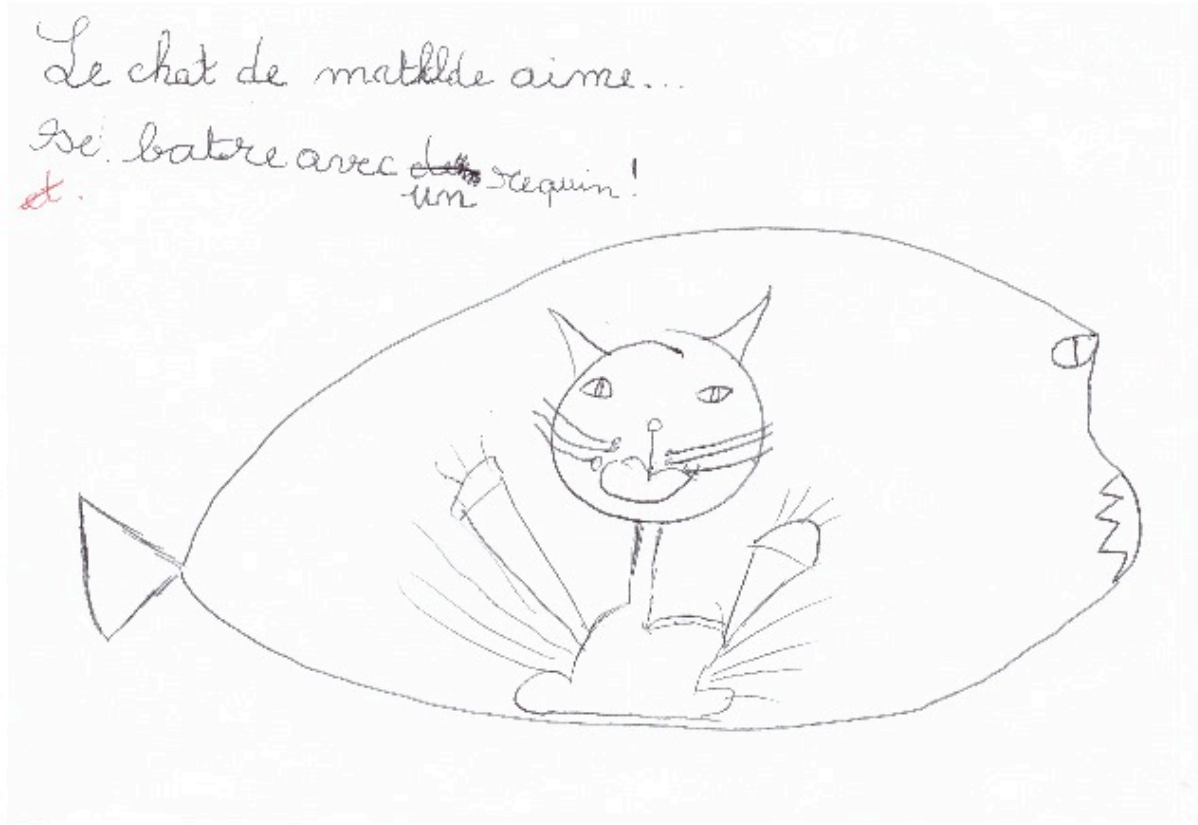 Le chat de mathlde aime...
Se batre avec un requin!
et.